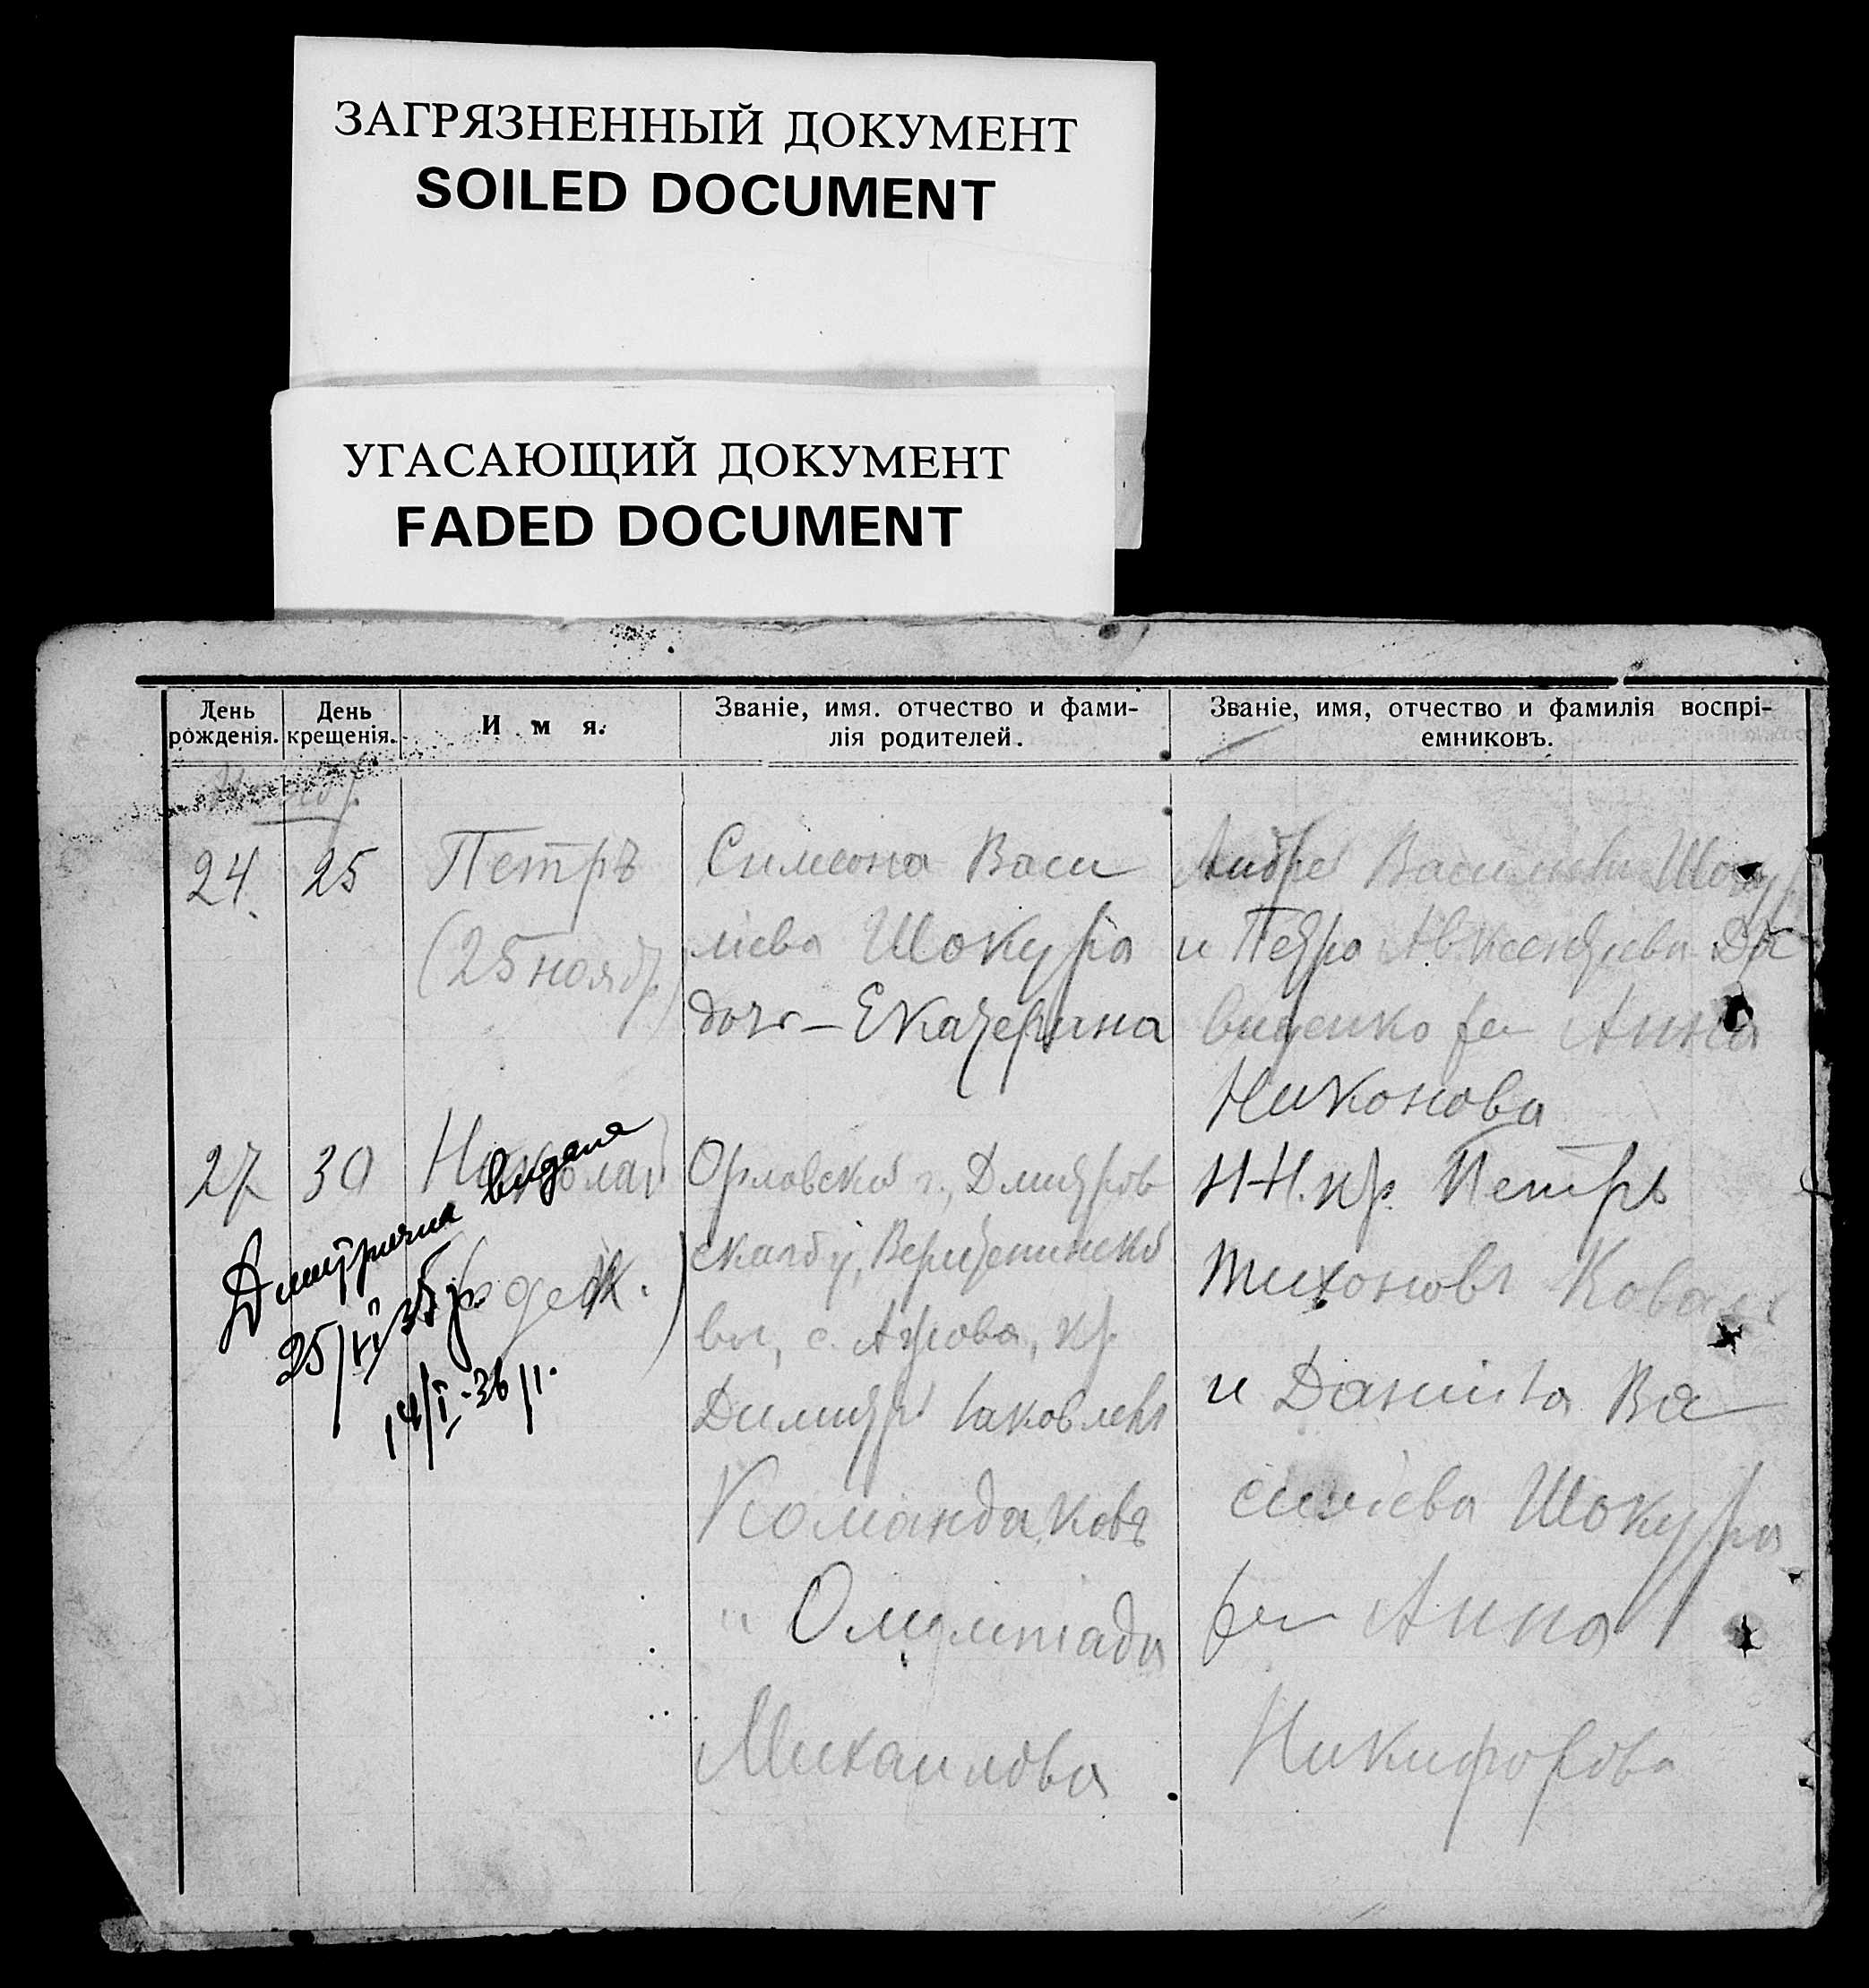 ЗАГРЯЗНЕННЫЙ ДОКУМЕНТ
SOILED DOCUMENT
УГАСАЮЩИЙ ДОКУМЕНТ
FADED DOCUMENT
День рожденія.
День крещенія.
И м я.
Званіе, имя. отчество и фами-
лія родителей.
Званіе, имя, отчество и фамилія воспрі-
емниковъ.
24. 25 Петръ
(25 нояб.)
Симеона Васи
лиева Шокура
дочь – Екатерина
Василь Шокур
и Петра Авксентиева Да
виденко Анна
Никонова
27 30 Николай
(6 дек.)
Дмитриена видана
25/VI 35 р.
14/I-36 р.
Орловской г., Дмитров
скаго у,
вол, с. кр.
Димитр Іаковлевъ
Командаковъ
и Олимпіада
Михаилова
Н-Н. кр. Петръ
Тихоновъ Коваль
и Даниила Ва
силіева Шокура
Анна
Никифорова